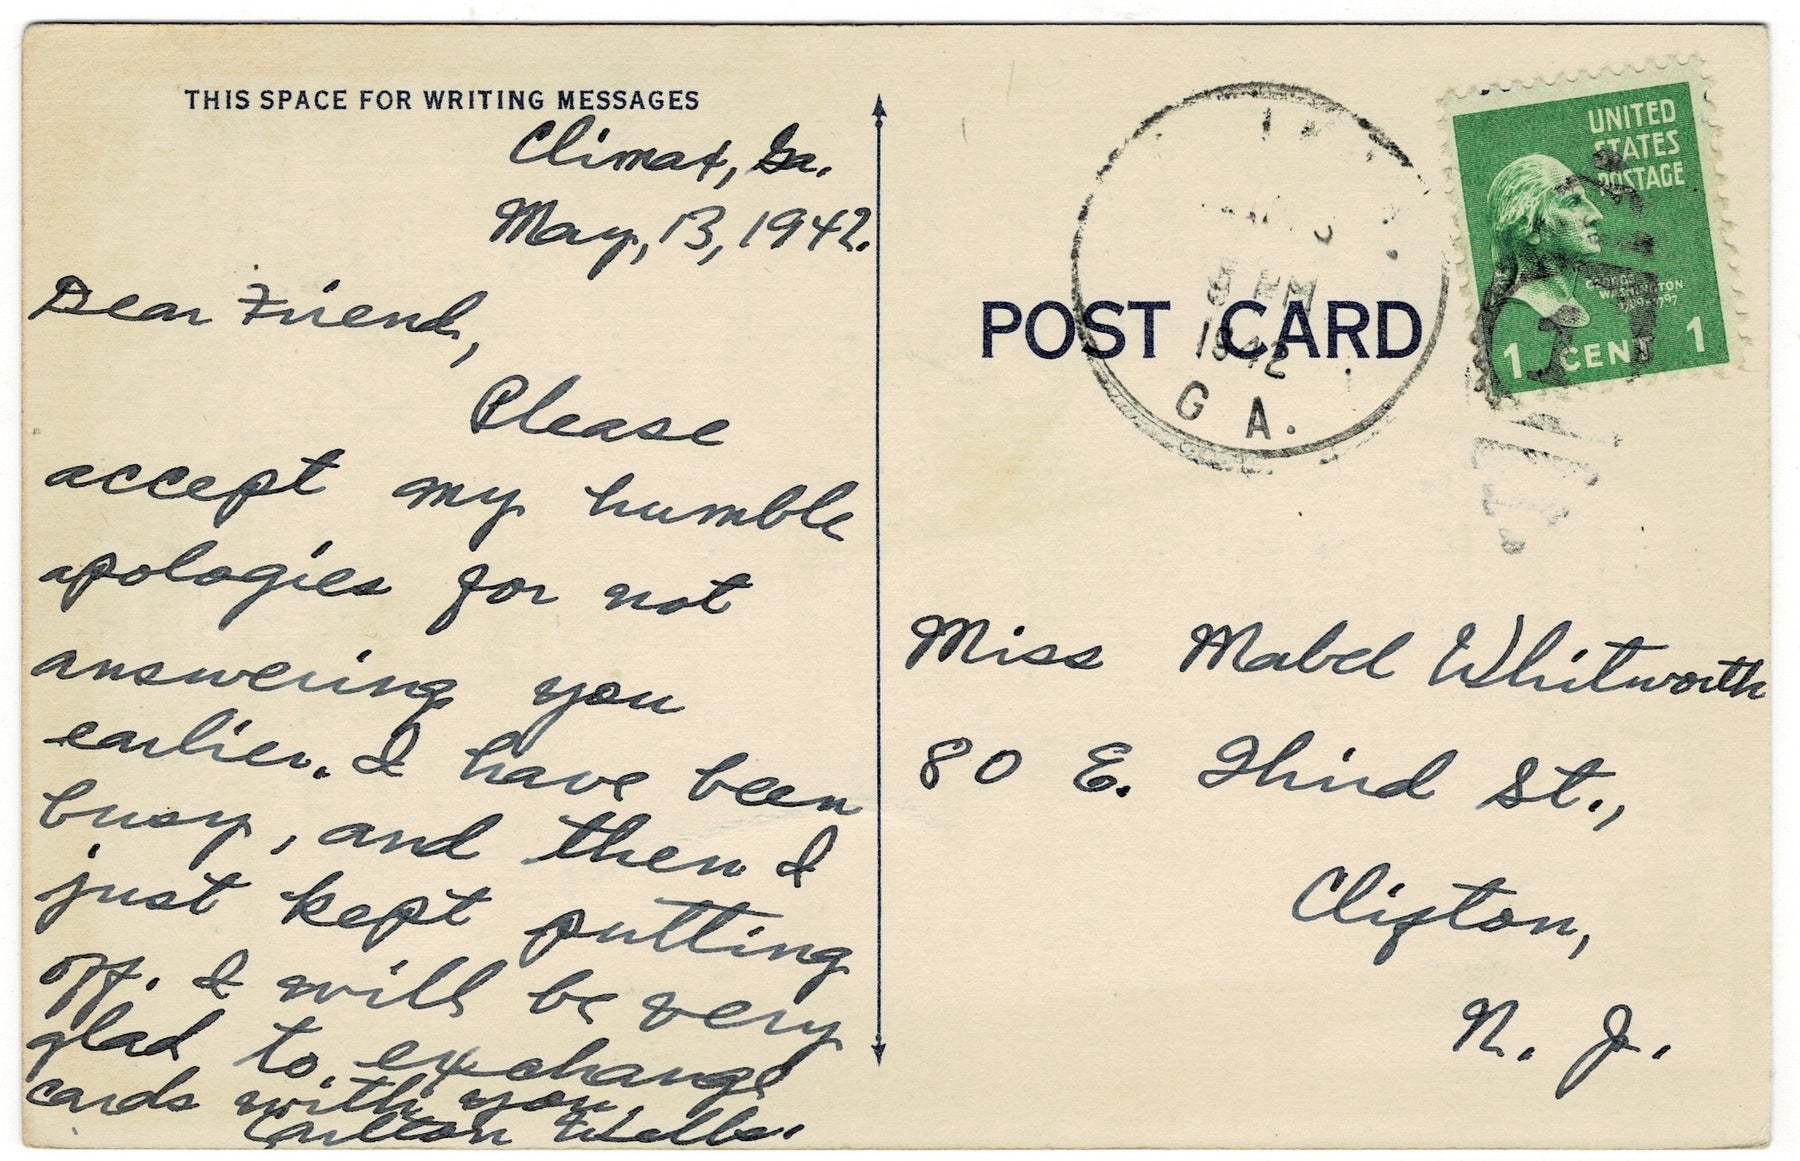 THIS SPACE FOR WRITING MESSAGES
Climax, Ga.
May, 13, 1942.
Dear Friend,
Please
accept my humble
apologies for not
answering you
earlier. I have been
busy, and then I
just kept putting
off. I will be very
glad to exchange
cards with you.
Carlton Wells.
POST CARD
8 PM
1942
GA.
UNITED
STATES
POSTAGE
GEORGE
WASHINGTON
1789-1797
1 CENT 1
Miss Mabel Whitworth
80 E. Third St.,
Clifton,
N. J.